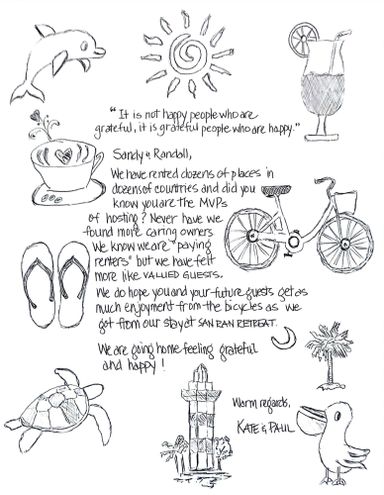 "It is not happy people who are
grateful, it is grateful people who are happy."
Sandy & Randall,
We have rented dozens of places in
dozens of countries and did you
know you are the MVPs
of hosting? Never have we
found more caring owners
We know we are "paying
renters" but we have felt
more like VALUED GUESTS.
We do hope you and your future guests get as
much enjoyment from the bicycles as we
got from our stay at SAN RAN RETREAT.
We are going home feeling grateful
and happy!
Warm regards,
KATE & PAUL